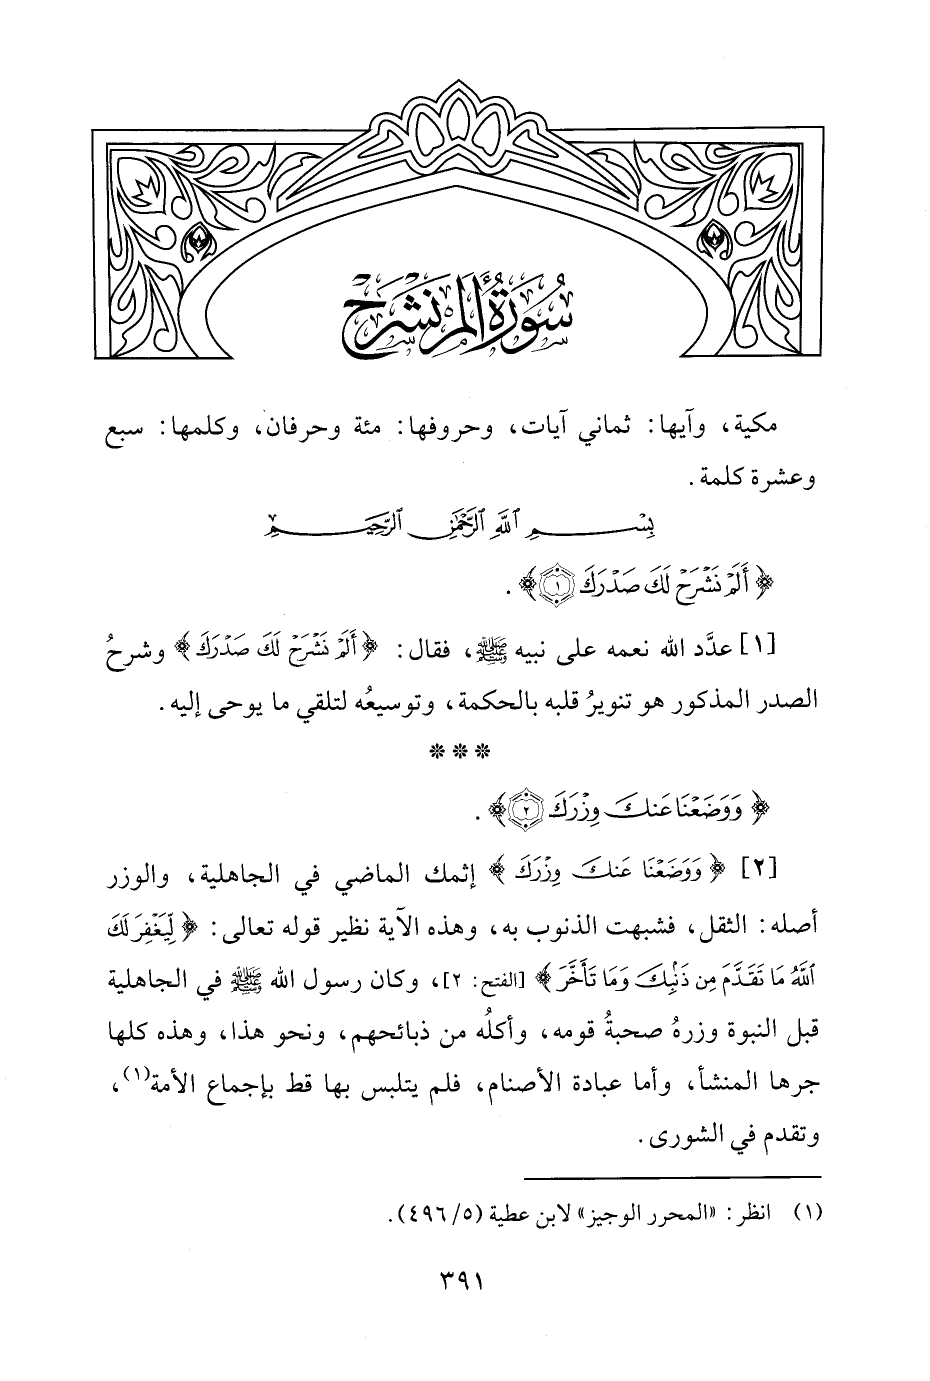 سُورَةُ أَلَمْ نَشْرَحْ
مكية، وآيها: ثماني آيات، وحروفها: مئة وحرفان، وكلمها: سبع
وعشرة كلمة.
بِسْمِ اللَّهِ الرَّحْمَٰنِ الرَّحِيمِ
﴿ أَلَمْ نَشْرَحْ لَكَ صَدْرَكَ ١ ﴾.
[١] عدَّد الله نعمه على نبيه ﷺ، فقال: ﴿ أَلَمْ نَشْرَحْ لَكَ صَدْرَكَ ﴾ وشرحُ
الصدر المذكور هو تنويرُ قلبه بالحكمة، وتوسيعُه لتلقي ما يوحى إليه.
* * *
﴿ وَوَضَعْنَا عَنكَ وِزْرَكَ ٢ ﴾.
[٢] ﴿ وَوَضَعْنَا عَنكَ وِزْرَكَ ﴾ إثمك الماضي في الجاهلية، والوزر
أصله: الثقل، فشبهت الذنوب به، وهذه الآية نظير قوله تعالى: ﴿ لِّيَغْفِرَ لَكَ
اللَّهُ مَا تَقَدَّمَ مِن ذَنبِكَ وَمَا تَأَخَّرَ ﴾ [الفتح: ٢]، وكان رسول الله ﷺ في الجاهلية
قبل النبوة وزرهُ صحبةُ قومه، وأكلُه من ذبائحهم، ونحو هذا، وهذه كلها
جرها المنشأ، وأما عبادة الأصنام، فلم يتلبس بها قط بإجماع الأمة(١)،
وتقدم في الشورى.
(١) انظر: «المحرر الوجيز» لابن عطية (٥/ ٤٩٦).
٣٩١